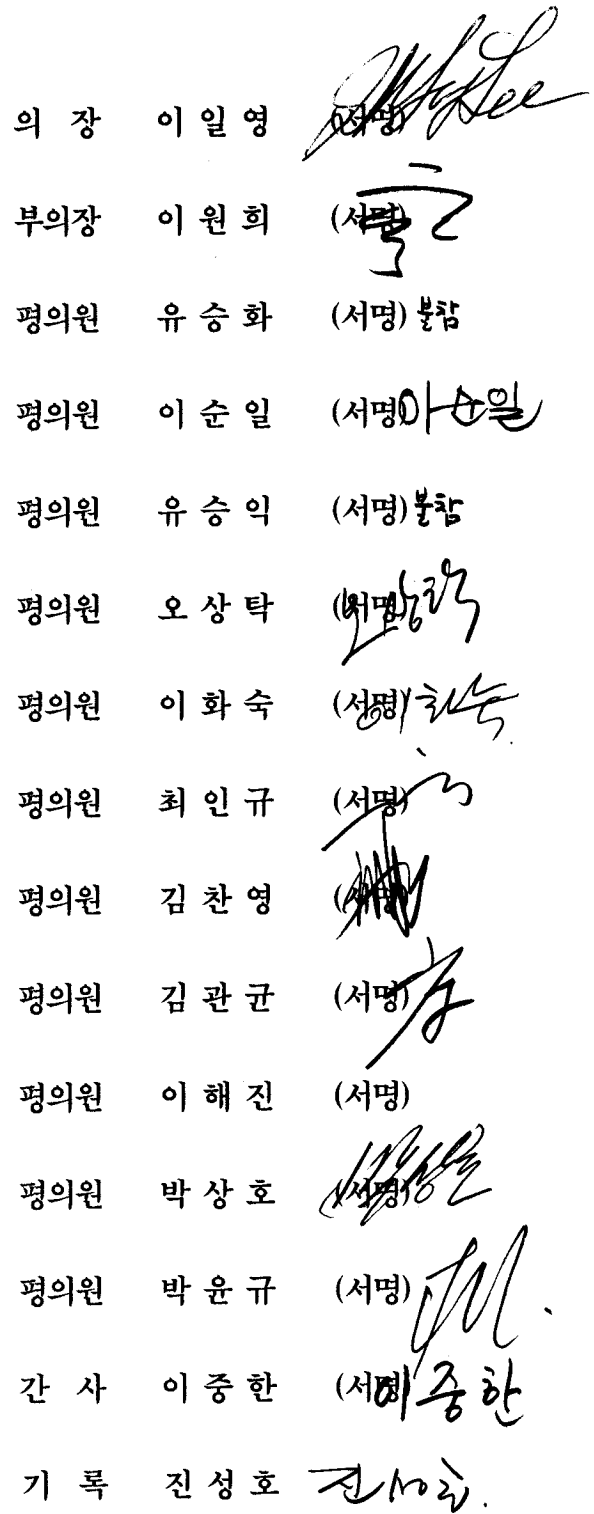 의 장 이 일 영 (서명)
부의장 이 원 희 (서명)
평의원 유 승 화 (서명) 불참
평의원 이 순 일 (서명) 이순일
평의원 유 승 익 (서명) 불참
평의원 오 상 탁 (서명) 오상탁
평의원 이 화 숙 (서명) 이화숙
평의원 최 인 규 (서명)
평의원 김 찬 영 (서명)
평의원 김 관 균 (서명)
평의원 이 해 진 (서명)
평의원 박 상 호 (서명)
평의원 박 윤 규 (서명)
간 사 이 중 한 (서명) 이중한
기 록 진 성 호 진성호.